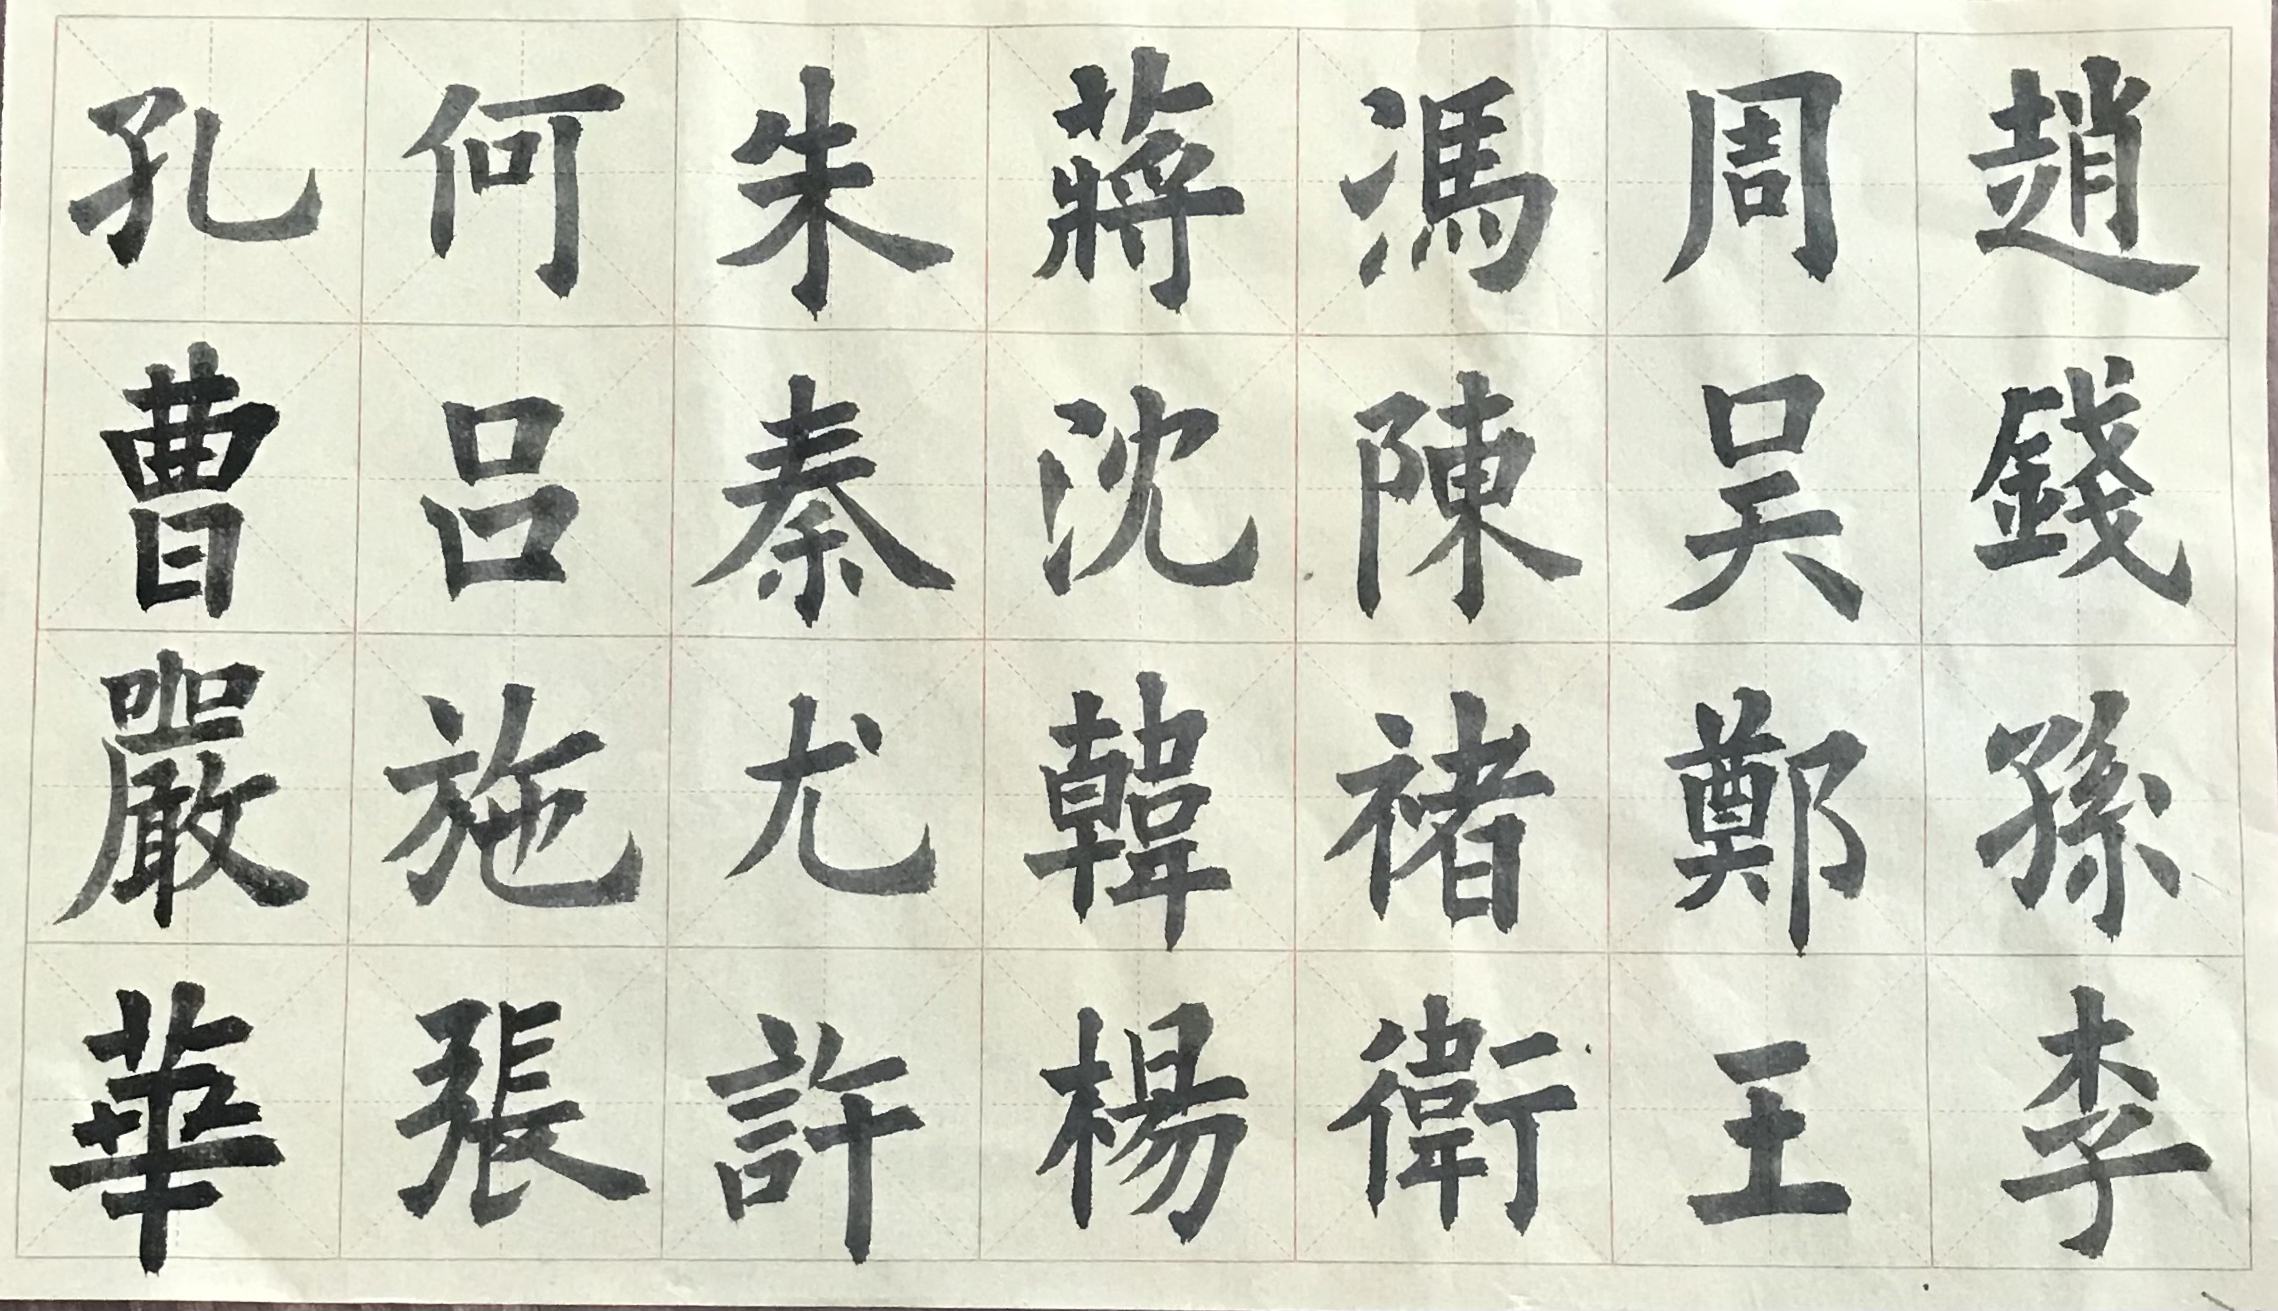 趙錢孫李
周吴鄭王
馮陳褚衛
蔣沈韓楊
朱秦尤許
何吕施張
孔曹嚴華